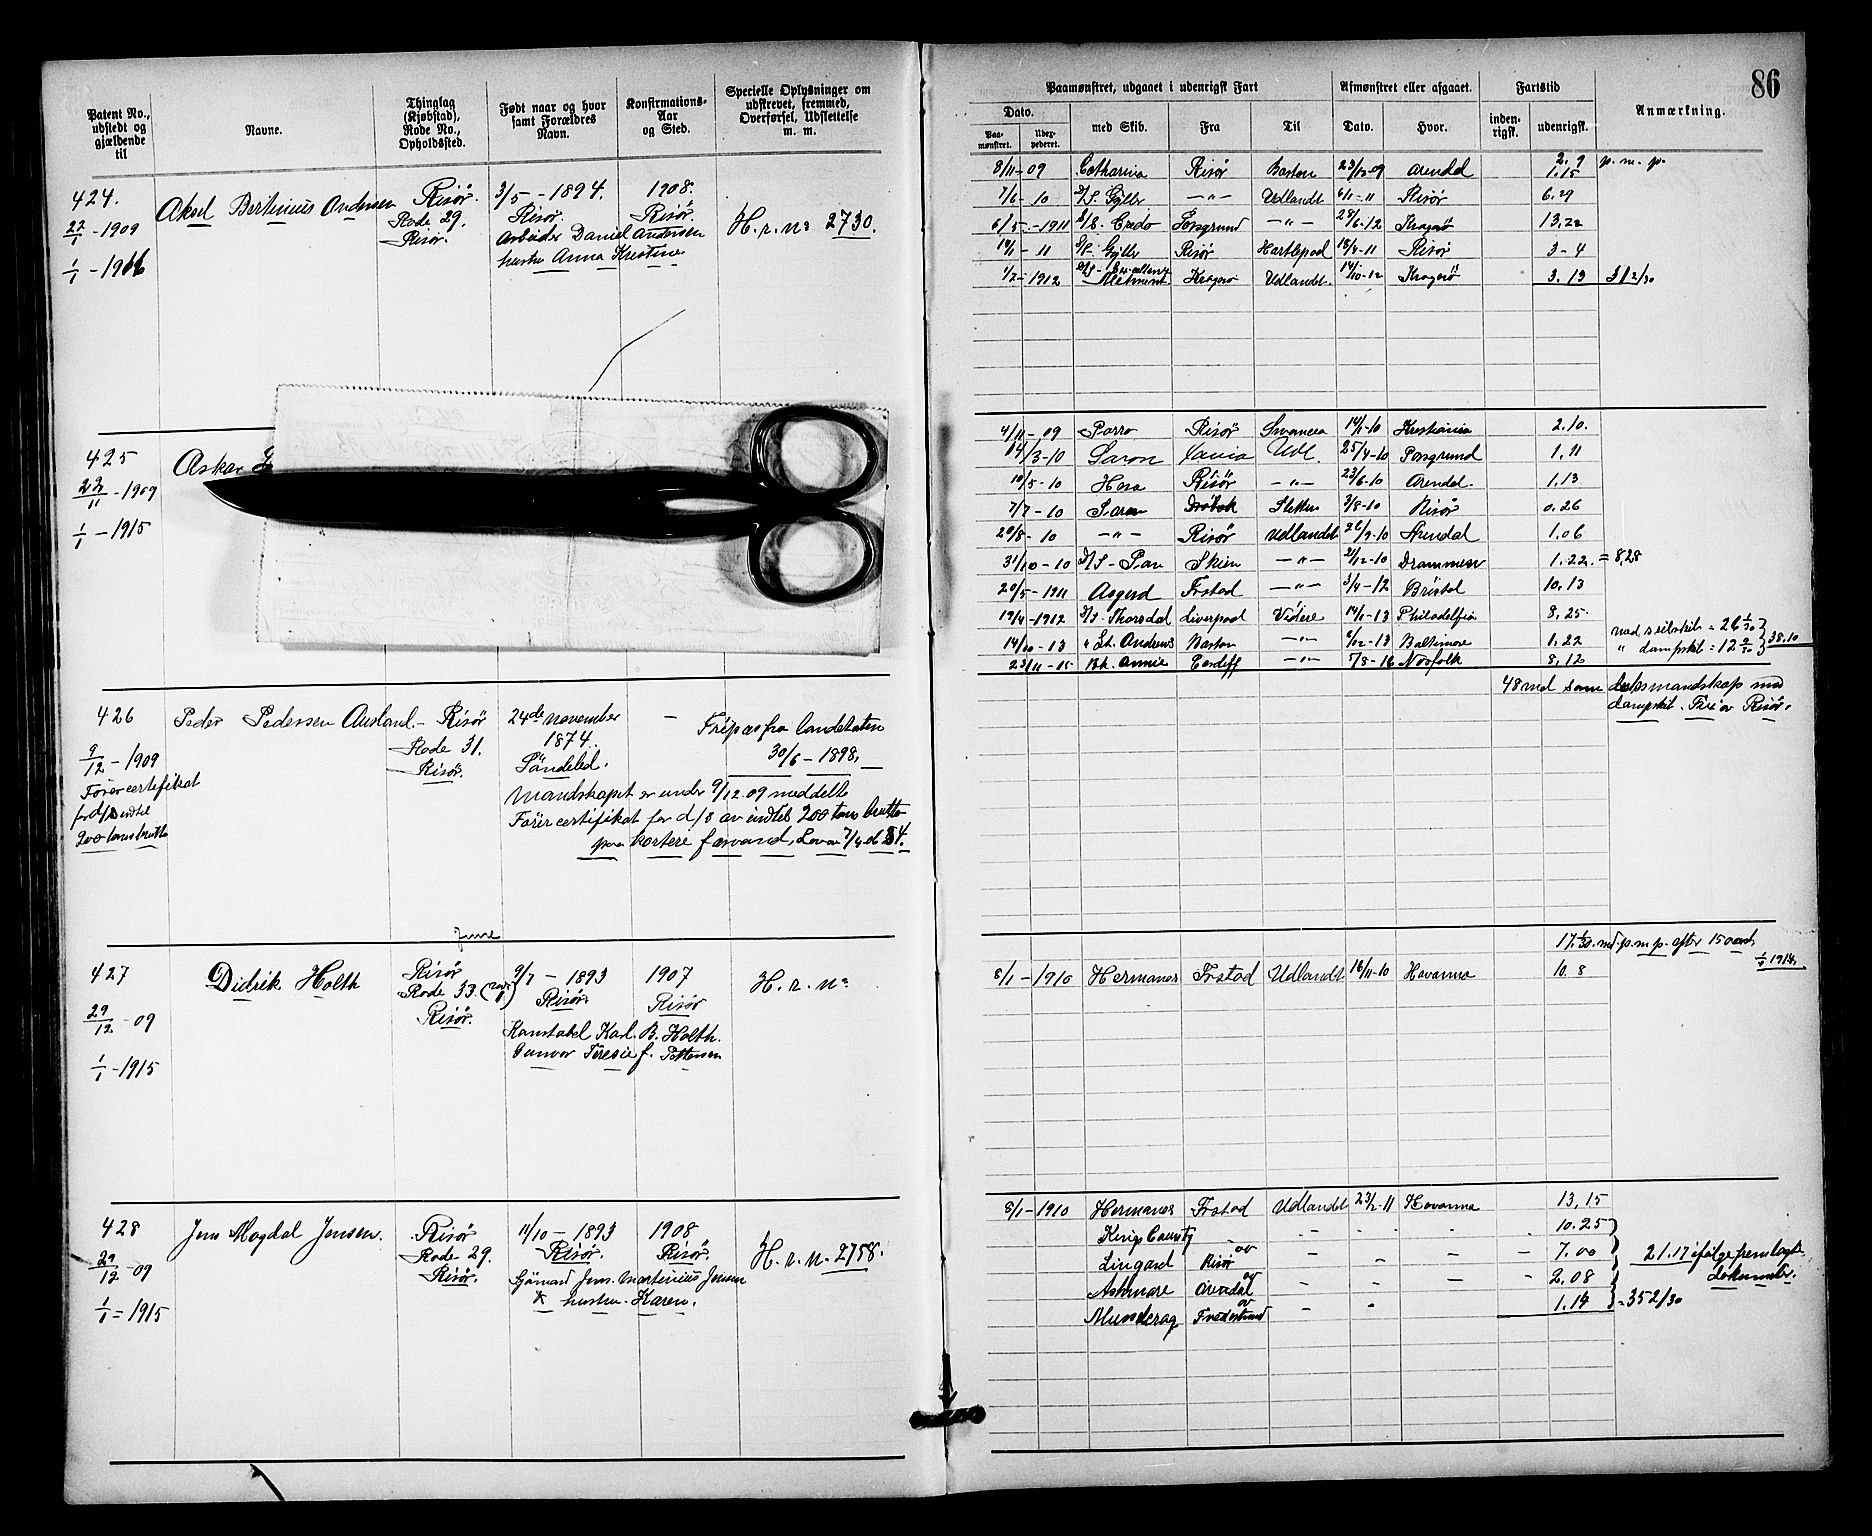 86
Patent No., udstedt og gjældende til
Navne.
Thinglag (Kjøbstad), Rode No., Opholdssted.
Født naar og hvor samt Forældres Navn.
Konfirmations-Aar og Sted.
Specielle Oplysninger om udskrevet, fremmed, Overførsel, Udslettelse m. m.
Paamønstret, udgaaet i udenrigsk Fart
Afmønstret eller afgaaet.
Fartstid
Anmærkning.
Dato.
med Skib.
Fra
Til
Dato.
Hvor.
inden-rigsk.
udenrigsk.
Paa-mønstret.
424.
Aksel Bertinius Andersen
Risör.
3/5 - 1894.
1908.
22/1 - 1909
Rode 29.
Risör.
Risör.
H. r. No 2730.
Risör.
Arbeider Daniel Andersen
1/1 - 1916
hustru Anna Kristine
8/11 - 09 Catharina Risör Boston 23/12-09 Arendal 2. 9 p. m. p.
1.15
7/6 - 10 Risör Udlandt 6/11 - 11 Risör 6.29
6/5 - 1911 Credo Porsgrund - " - 28/6-12 Kragerö 13.22
19/1 - 11 Risör Hartlepool 18/4-11 Risör 3 - 4
1/2 - 1912 Kragerö Udlandt. 14/10-12 Kragerö 3.13 312/30
425
Askar
23/11 - 1909
1/1 - 1915
4/11 - 09 Parra Risör Swansea 14/1-10 Kristiania 2.10.
14/3-10 Saron Udl. 25/4-10 Porsgrund 1.11
10/5 - 10 Risör - " - 23/6-10 Arendal. 1.13
7/7 - 10 Saron 3/8-10 Risör 0.26
20/8 - 10 - " - Risör Udlandet 26/9-10 Arendal 1.06
31/10 - 10 Skien - " - 21/12-10 Drammen 1.22. = 8,28
20/5 - 1911 Asgerd Frstad - " - 3/4-12 Bristol 10.13
19/4 - 1912 D/S Thorsdal Liverpool Videre 14/1-13 Philadelfia 8.25
14/10 - 13 " St. Andrews Boston - " - 6/12-13 Baltimore 1.22
23/11 - 15 Bk. Annie Cardiff - " - 7/8-16 Norfolk 8.12
med seilskib = 26 1/30
" dampskib = 12 9/30 } 38.10
48 md som dæksmandskap med
dampskib.
426
Peder Pedersen Ausland. - Risör
24de november
-
Fripas fra landetaten
9/12 - 1909
Rode 31.
1874.
30/6 - 1898.
Förercertifikat
Risör.
Söndeled.
for d/s indtil
200 tons brutto
Mandskapet er under 9/12 09 meddelt
Förercertifikat for d/s av indtil 200 tons brutto
paa kortere farvand,
June
427
Didrik Holth
Risör
9/7 - 1893
1907
H. r. No
Rode 33.
Risör.
Risör
29/12 - 09
Risör.
Konstabel Karl. B. Holth.
Gunvor Teresie f. Pettersen
1/1 - 1915
17.1/30. md. p. m. p. efter 15 aar
8/1 - 1910 Hermanos Frstad Udlandt 16/11-10 Havanna 10.8
428
Jens Magdal Jensen.
Risör
11/10 - 1893
1908
Rode 29.
Risör.
Risör.
H. r. n. 2758.
29/12 - 09
Risör.
Sjömand Jens Martinius Jensen
hustru. Karen.
1/1 = 1915
8/1 - 1910 Hermanos Frstad Udlandt 23/2-11 Havanna 13.15
Kings County 10.25
Lingard Risör 7.00
21.17 ifölge fremlagte dokumenter.
Ashmore Arendal 2.08
Munderag Fredrikstad 1.14
= 352/30